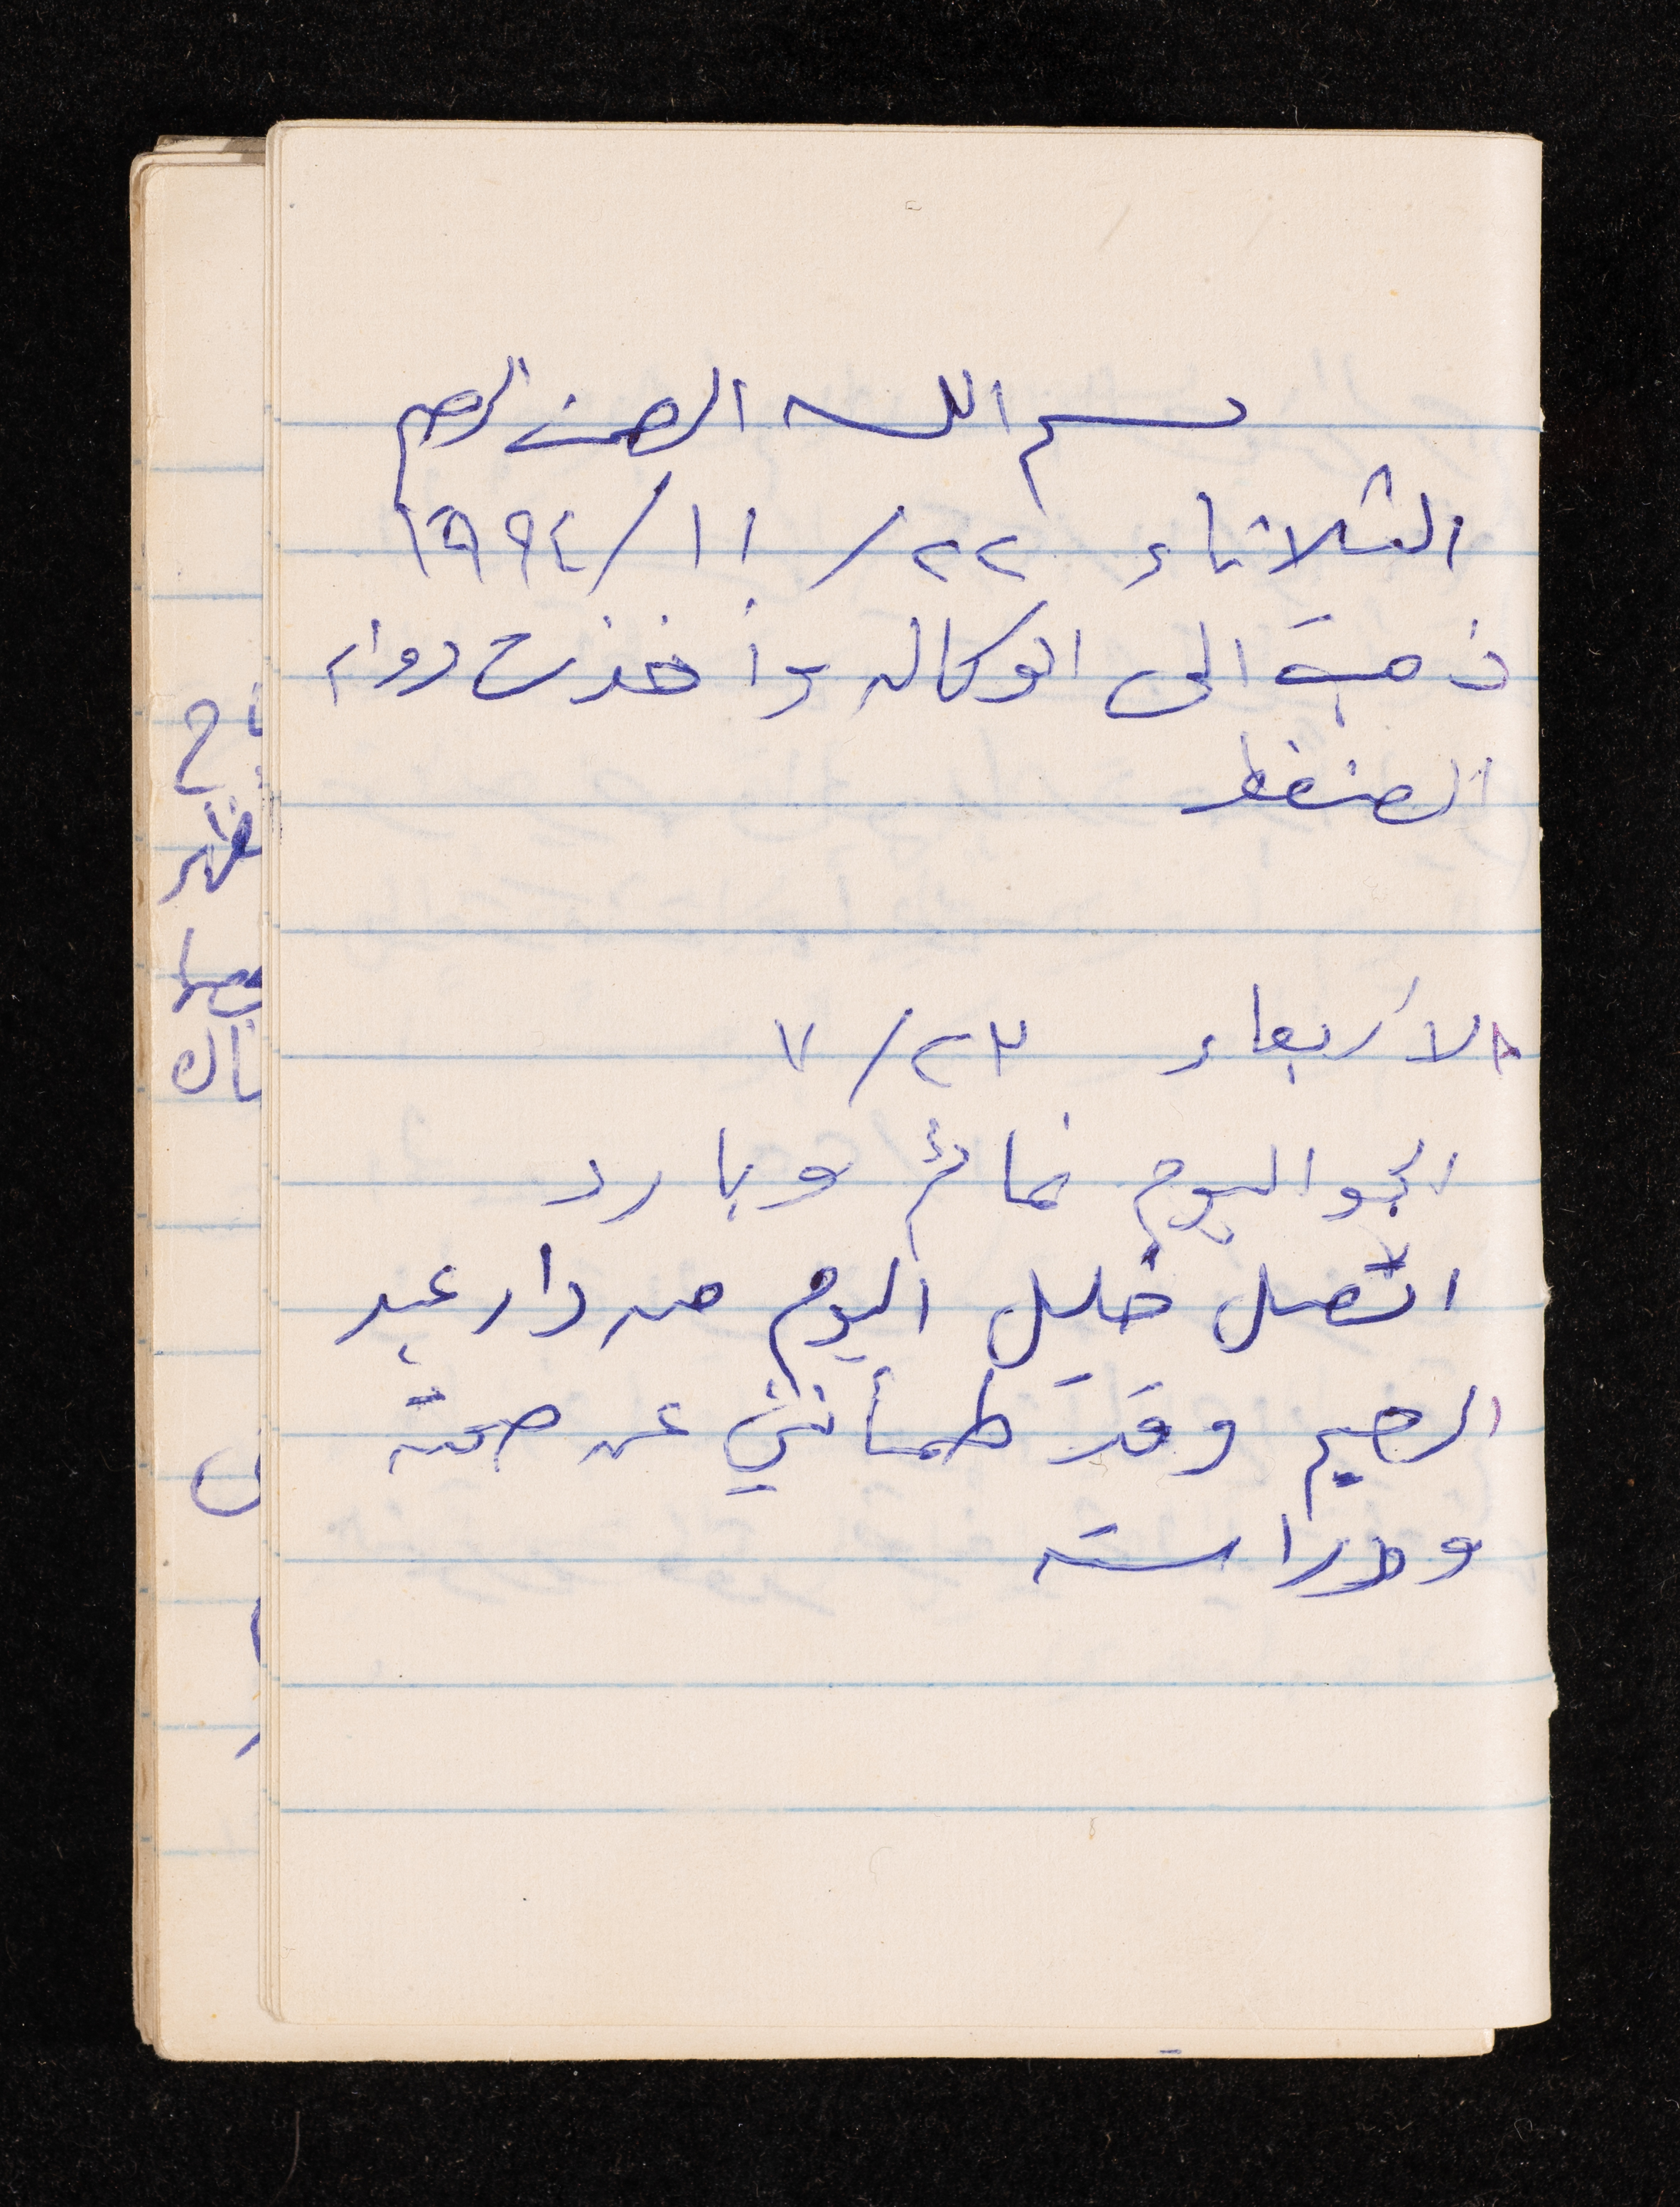 بسم الله الرحمن الرحيم
الثلاثاء ٢٢/١١/١٩٩٤
ذهبت الى الوكاله وأخذت دواء
الضغط
الأربعاء ٢٣/٧
الجو اليوم غائم وبارد
اتصل خليل اليوم من دار عبد
الرحيم وقد طمأنني عن صحته
ودراسته